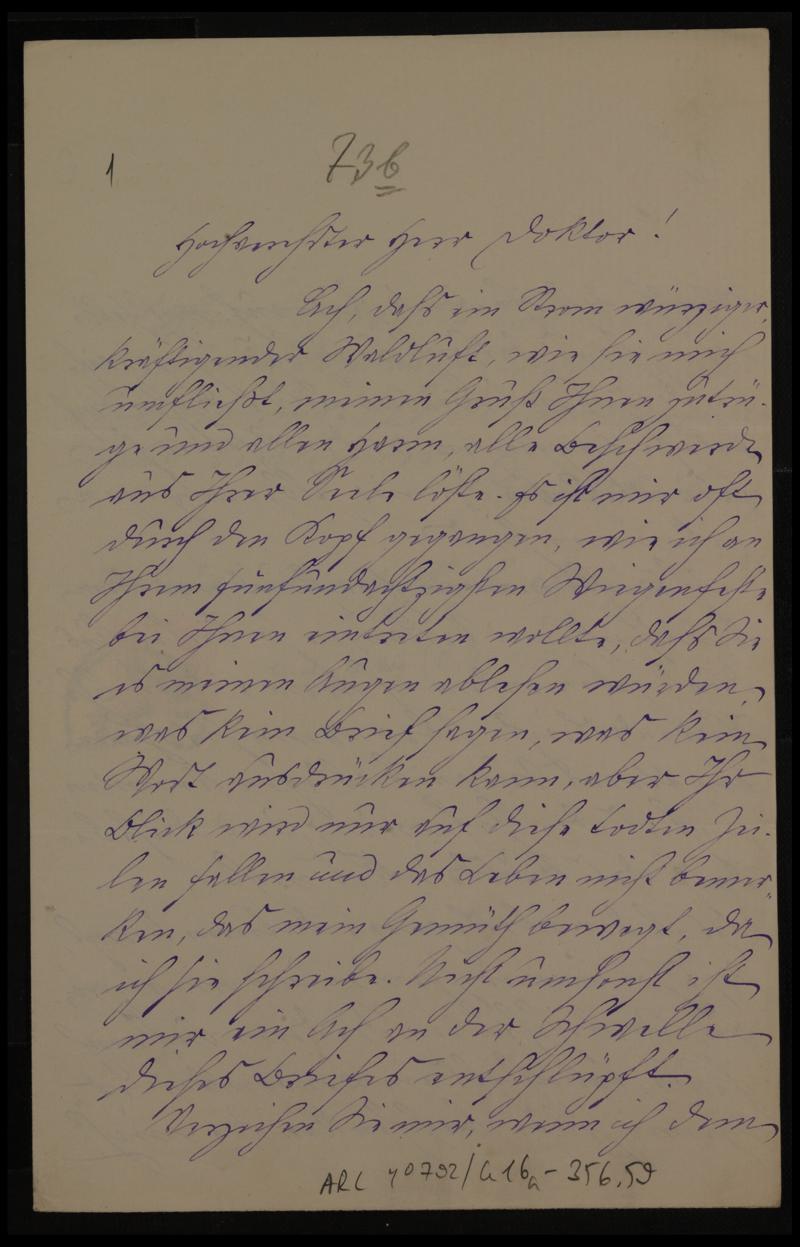 1
73b
Hochverehrter Herr Doktor!
Ach, daſs ein Strom würziger,
kräftigender Waldluft, wie sie mich
umfließt, meinen Gruß Ihnen zutrü-
ge und allen Harm, alle Beschwerde
aus Ihrer Seele löste. Es ist mir oft
durch den Kopf gegangen, wie ich an
Ihrem fünfundachtzigsten Wiegenfeste
bei Ihnen eintreten wollte, daſs Sie
es meinen Augen ablesen würden,
was kein Brief sagen, was kein
Wort ausdrücken kann, aber Ihr
Blick wird nur auf diese todten Zei-
len fallen und das Leben nicht bemer-
ken, das mein Gemüth bewegt, da
ich sie schreibe. Nicht umsonst ist
mir ein Ach an der Schwelle
dieses Briefes entschlüpft.
Verzeihen Sie mir, wenn ich dem
ARC 40792/G16a - 356,59